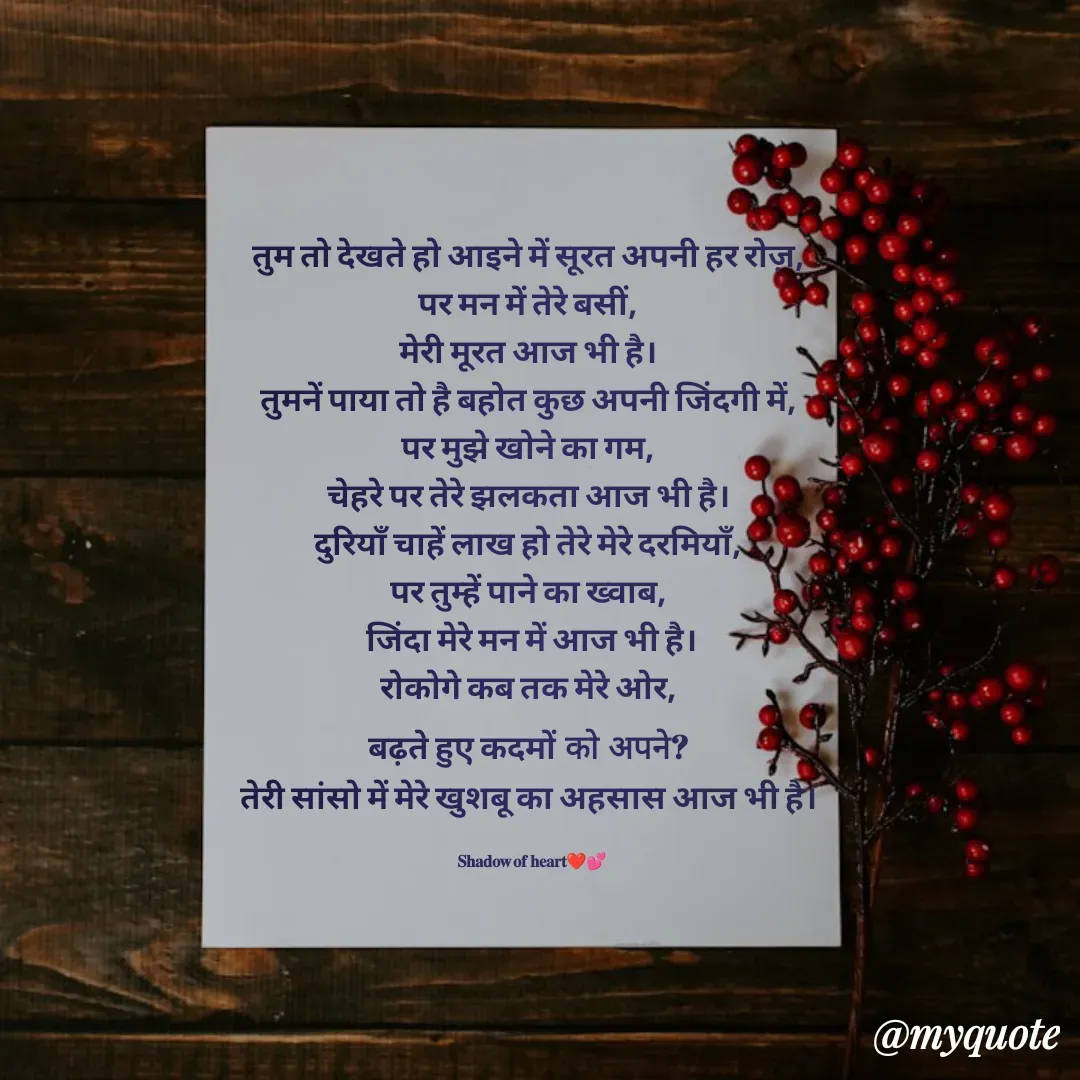 तुम तो देखते हो आइने में सूरत अपनी हर रोज़,
पर मन में तेरे बसीं,
मेरी मूरत आज भी है।
तुमनें पाया तो है बहोत कुछ अपनी जिंदगी में,
पर मुझे खोने का गम,
चेहरे पर तेरे झलकता आज भी है।
दुरियाँ चाहें लाख हो तेरे मेरे दरमियाँ,
पर तुम्हें पाने का ख्वाब,
जिंदा मेरे मन में आज भी है।
रोकोगे कब तक मेरे ओर,
बढ़ते हुए कदमों को अपने?
तेरी सांसो में मेरे खुशबू का अहसास आज भी है।
Shadow of heart❤️💕
@myquote